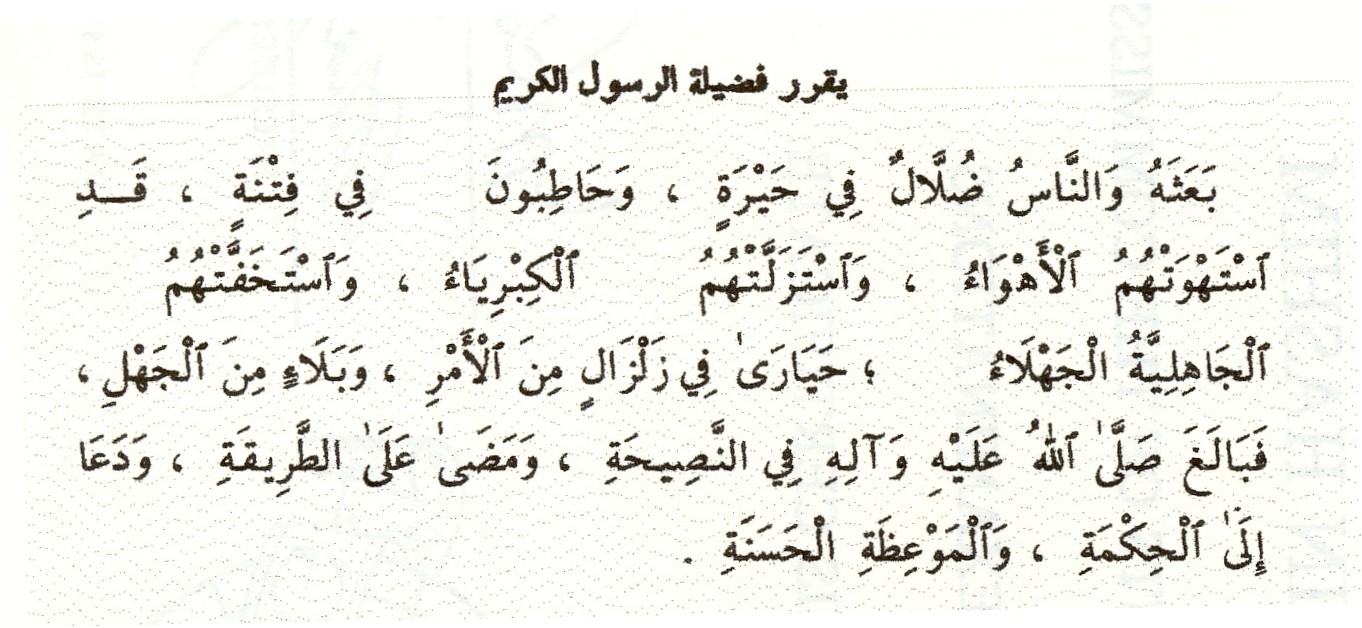 يقرر فضيلة الرسول الكريم
بَعَثَهُ وَالنَّاسُ ضُلَّالٌ فِي حَيْرَةٍ ، وَحَاطِبُونَ فِي فِتْنَةٍ ، قَـدِ
ٱسْتَهْوَتْهُمُ ٱلْأَهْوَاءُ ، وَٱسْتَزَلَّتْهُمُ ٱلْكِبْرِيَاءُ ، وَٱسْتَخَفَّتْهُمُ
ٱلْجَاهِلِيَّةُ الْجَهْلَاءُ ؛ حَيَارَىٰ فِي زَلْزَالٍ مِنَ ٱلْأَمْرِ ، وَبَلَاءٍ مِنَ ٱلْجَهْلِ ،
فَبَالَغَ صَلَّىٰ ٱللهُ عَلَيْهِ وَآلِهِ فِي النَّصِيحَةِ ، وَمَضَىٰ عَلَىٰ الطَّرِيقَةِ ، وَدَعَا
إِلَىٰ ٱلْحِكْمَةِ ، وَٱلْمَوْعِظَةِ الْحَسَنَةِ .